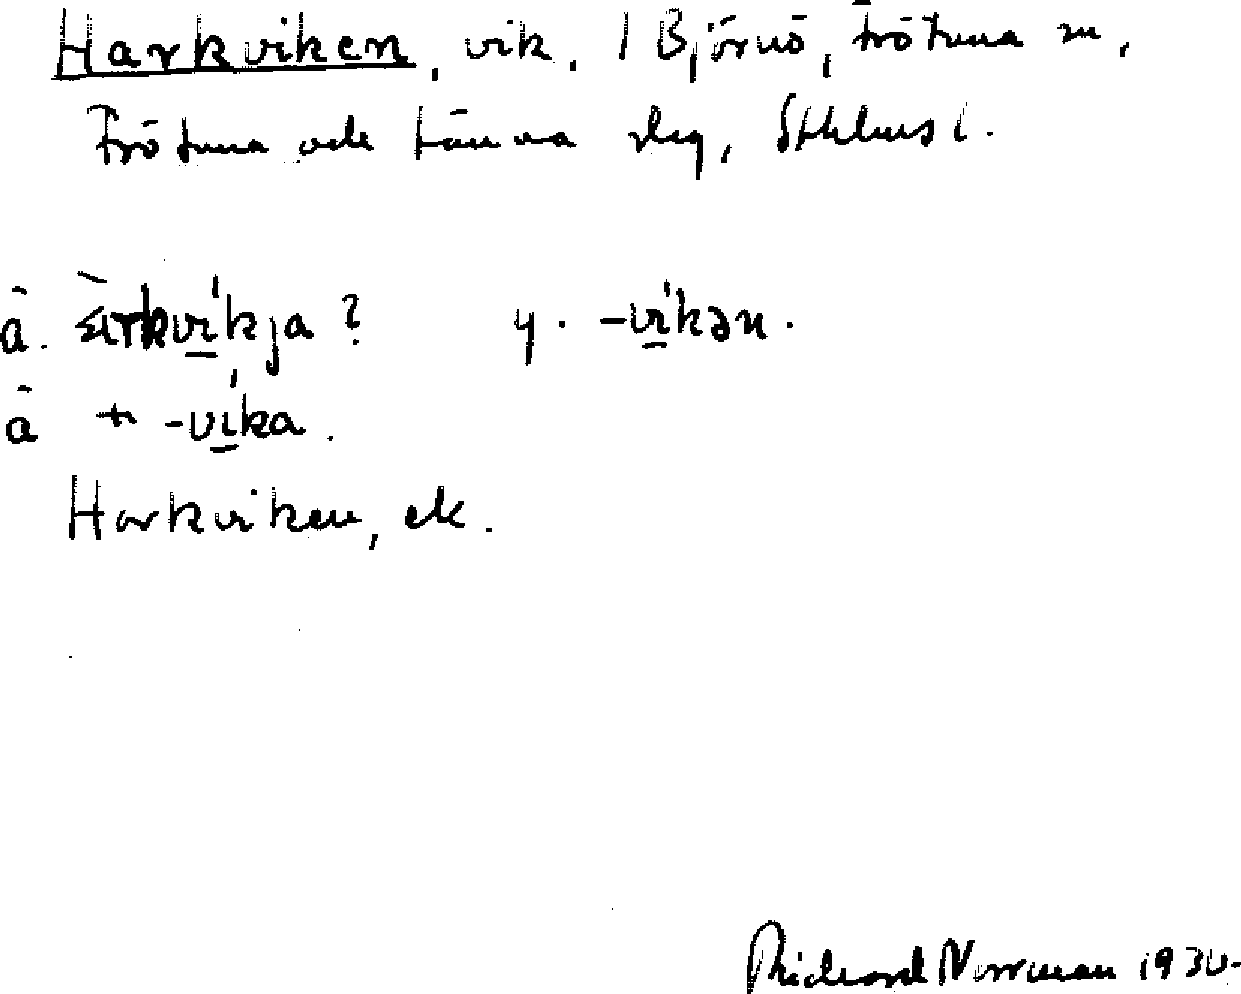 Harkviken, vik. 1 Björnö, Frötuna sn,
Frötuna och Länna slg, Sthlms l.
ä. ärkvikja? y. -vikən.
ä -vika.
Harkviken, ek.
Richard Norrman 1930.